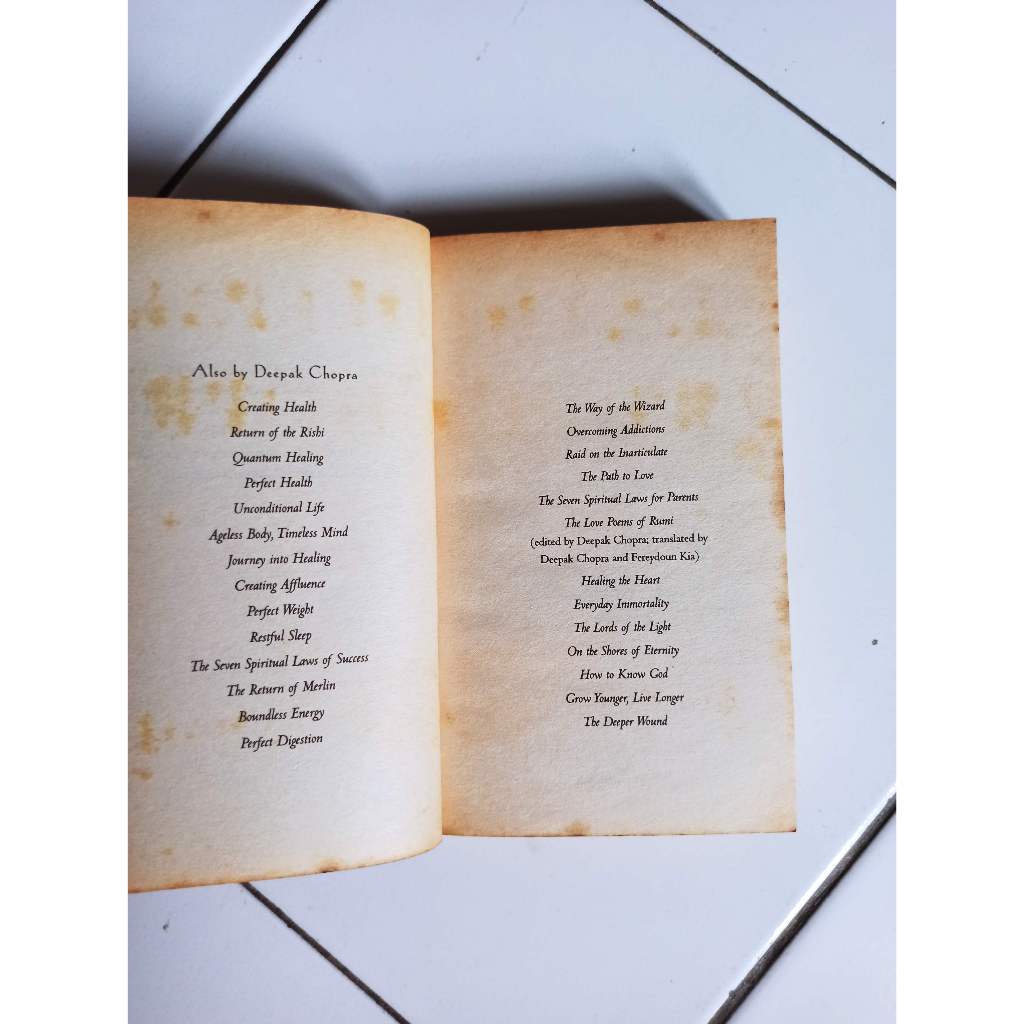 Also by Deepak Chopra
Creating Health
Return of the Rishi
Quantum Healing
Perfect Health
Unconditional Life
Ageless Body, Timeless Mind
Journey into Healing
Creating Affluence
Perfect Weight
Restful Sleep
The Seven Spiritual Laws of Success
The Return of Merlin
Boundless Energy
Perfect Digestion
The Way of the Wizard
Overcoming Addictions
Raid on the Inarticulate
The Path to Love
The Seven Spiritual Laws for Parents
The Love Poems of Rumi
(edited by Deepak Chopra; translated by
Deepak Chopra and Fereydoun Kia)
Healing the Heart
Everyday Immortality
The Lords of the Light
On the Shores of Eternity
How to Know God
Grow Younger, Live Longer
The Deeper Wound